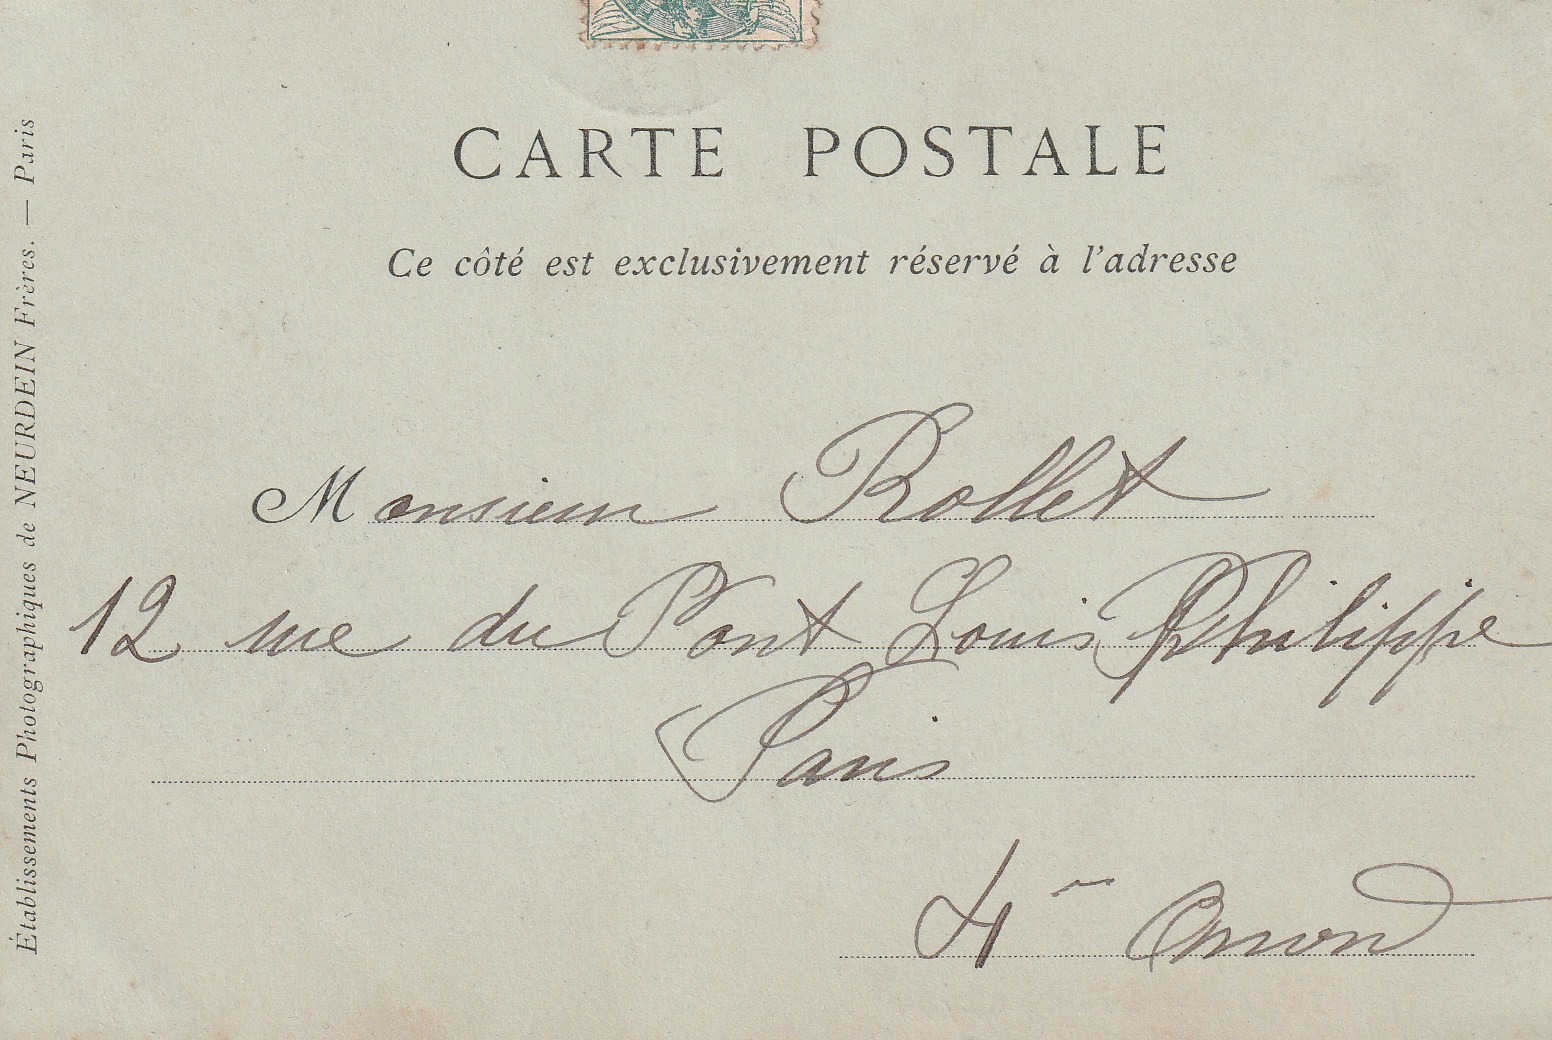 CARTE POSTALE
Ce côté est exclusivement réservé à l'adresse
Monsieur Rollet
12 rue du Pont Louis Philippe
Paris
4e Arrond
Établissements Photographiques de NEURDEIN Frères. — Paris